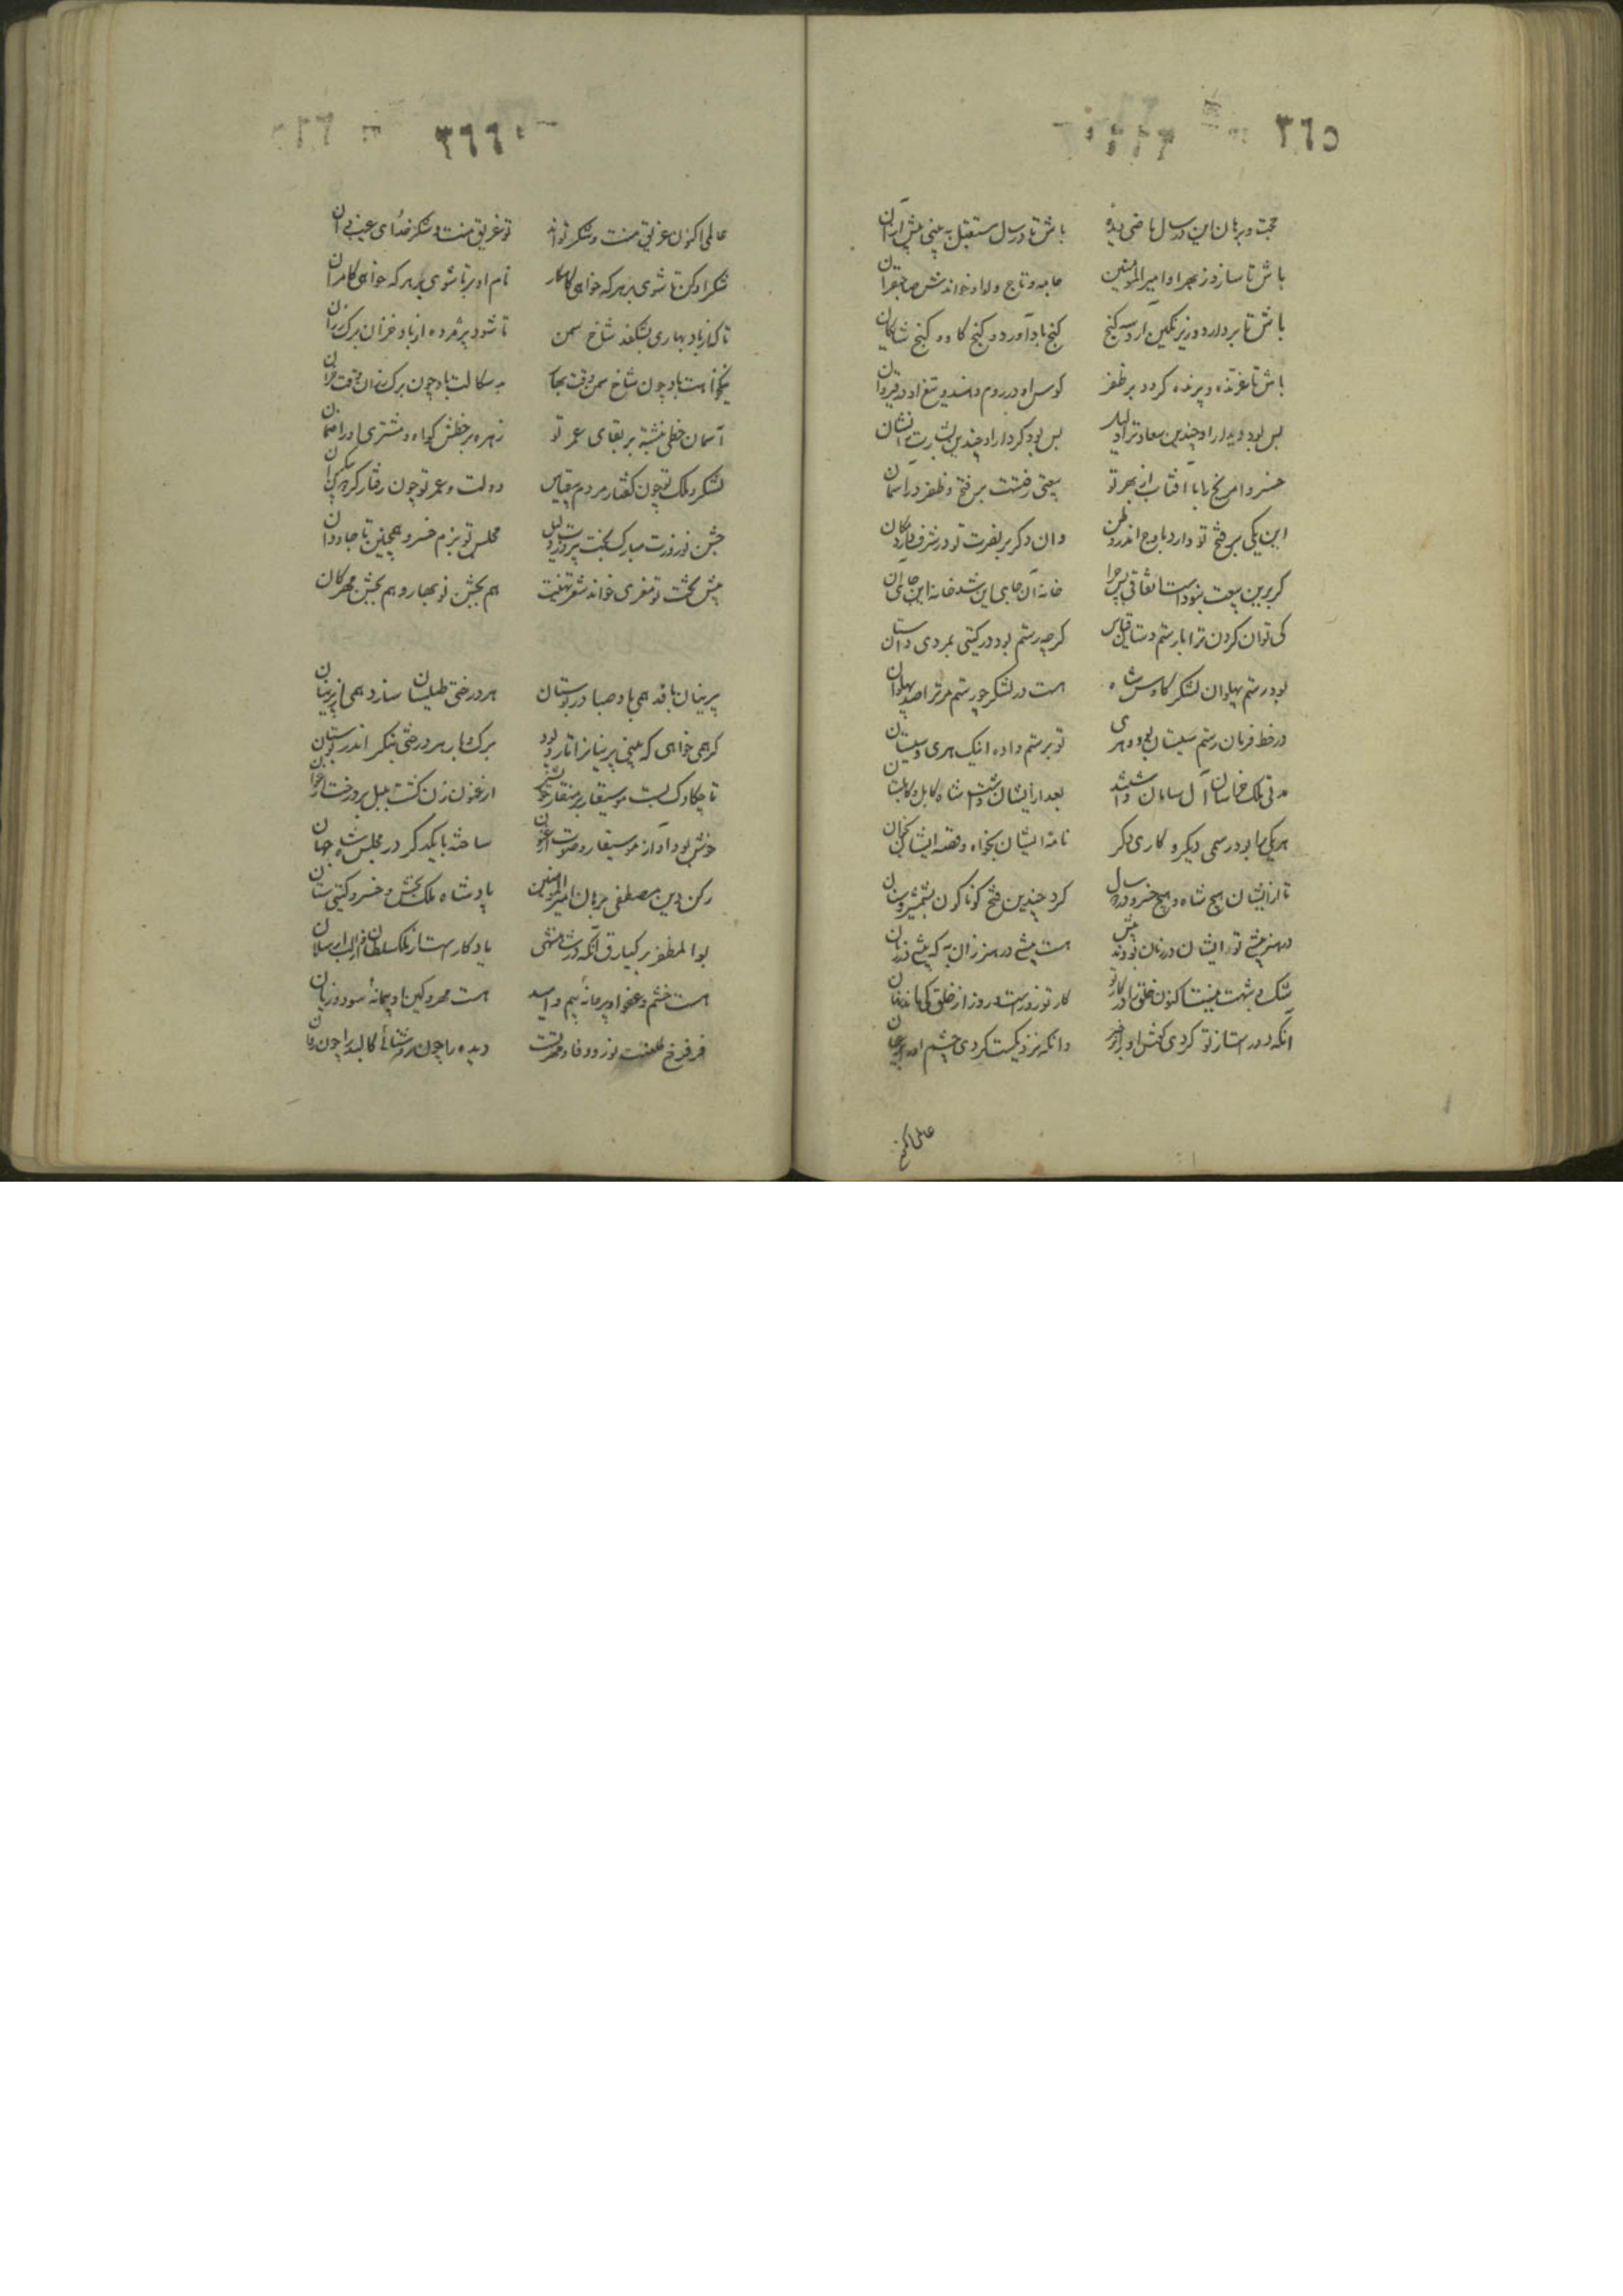 ٣٦٥
حجت و برهان این در سال ماضی دیده باش تا در سال مستقبل به بینی بیش ازان
باش تا سازد ز بهر او امیر المومنین جامه و تاج و لوا و خواندش صاحبقران
باش تا بردارد و زیر نگین آرد سه گنج گنج باد آورد و گنج گاو و گنج شایگان
باش تا غرنده و پرنده گردد بر ظفر کوس او در روم و هند و تیغ او در قیروان
بس بود دیدار او چندین سعادت را دلیل بس بود کردار او چندین بشارت را نشان
خسروا مریخ را با آفتاب از بهر تو بیعتی رفتست بر فتح و ظفر در آسمان
این یکی بر فتح تو دارد باوج اندر وطن وان دگر بر نصرت تو در شرف دارد مکان
گر برین بیعت نبودست اتفاقی پس چرا خانه آن جای این شد خانه این جای آن
کی توان کردن ترا با رستم دستان قیاس گرچه رستم بود در گیتی بمردی داستان
بود رستم پهلوان لشکر کاوس شاه هست در لشکر چو رستم مر ترا صد پهلوان
در خط فرمان رستم سیستان بود و هری تو برستم داده اینک هری و سیستان
مدتی ملک خراسان آل سامان داشتند بعد ازیشان داشتست شاه کابل و کابلستان
هر یکی را بود رسمی دیگر و کاری دگر نامه ایشان بخواه و قصه ایشان بخوان
تا ازیشان هیچ شاه و هیچ خسرو در سال کرد چندین فتح گوناگون بشمشیر و سنان
در هنر بیشی تو ایشان در زمان بودند پیش هست بیشی در هنر زان به که پیشی در زمان
کار تو روزست و روز از خلق کی ماند نهان
آنکه دور است از تو کردی گوش او پر از خبر وانکه نزدیکست کردی چشم او پر از عیان
عالمی اکنون
٣٦٦
عالمی اکنون غریق منت و شکر تواند تو غریق منت و شکر خدای غیب دان
شکر او کن تا شوی بر هر که خواهی کامکار نام او بر تا شوی بر هر که خواهی کامران
تا که از باد بهاری بشکفد شاخ سمن تا شود پژمرده از باد خزان برگ رزان
نیکخواهت باد چون شاخ سمن وقت بهار بد سکالت باد چون برگ رزان وقت خزان
آسمان خطی نبشته بر بقای عمر تو زهره بر خطش گواه و مشتری او را ضمان
لشکر و ملک تو چون گفتار مردم بی قیاس دولت و عمر تو چون رفتار گردون بی کران
جشن نوروزت مبارک بخت پیروزت دلیل مجلس تو بزم خسرو همچنین تا جاودان
پیش تختت تو معزی خواند شعر تهنیت هم بجشن نوبهار و هم بجشن مهرگان
پرنیان بافد همی باد صبا در بوستان هر درختی طیلسان سازد همی از پرنیان
گر همی خواهی که بینی پرنیانرا تار و پود برگ و بار هر درختی بنگر اندر بوستان
تا چکاوک بست موسیقار بر منقار خویش ارغنون زن گشت بلبل بر درخت ارغوان
خوش بود آواز موسیقار و صوت ارغنون ساخته با یکدگر در مجلس شاه جهان
رکن دین مصطفی برهان امیر المومنین پادشاه ملک بخش و خسرو گیتی ستان
بوالمظفر برکیارق آنکه در شاهنشهی یادگار است از ملک سلطان و از الب ارسلان
هست خشم و عفو او پیمانه بیم و امید هست مهر و کین او پیمانه سود و زیان
فر فرخ طلعتت نور و وفا و مهر تست دیده را چون روشنائی کالبد را چون روان